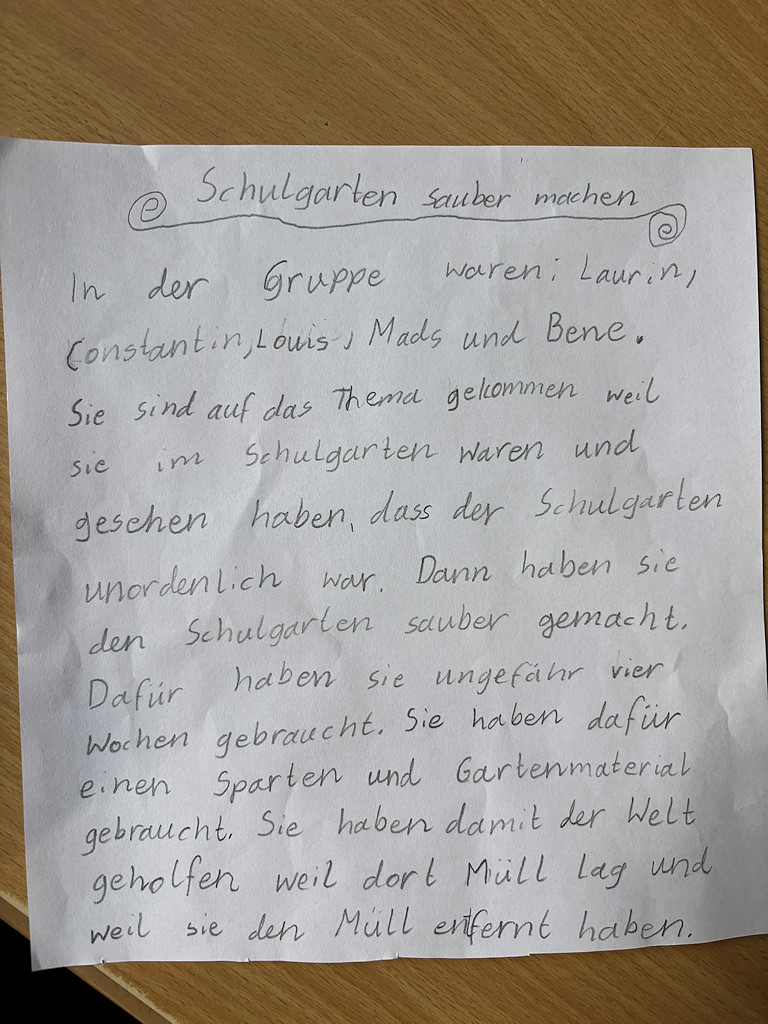 Schulgarten sauber machen
In der Gruppe waren: Laurin,
Constantin, Louis, Mads und Bene.
Sie sind auf das Thema gekommen weil
sie im Schulgarten waren und
gesehen haben, dass der Schulgarten
unordenlich war. Dann haben sie
den Schulgarten sauber gemacht.
Dafür haben sie ungefähr vier
Wochen gebraucht. Sie haben dafür
einen Sparten und Gartenmaterial
gebraucht. Sie haben damit der Welt
geholfen weil dort Müll lag und
weil sie den Müll entfernt haben.